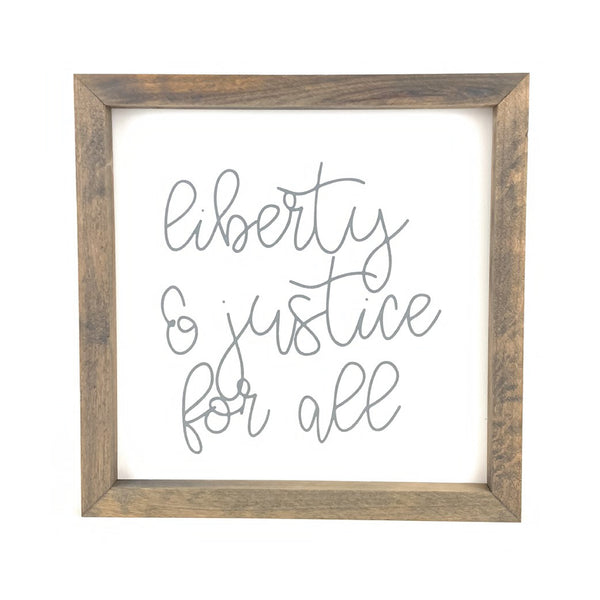 liberty
& justice
for all